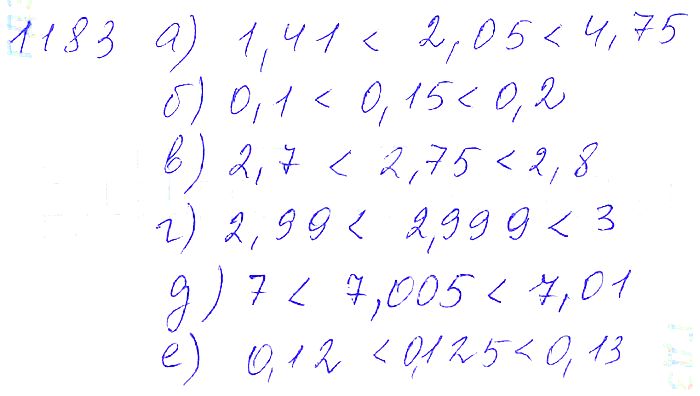 1183 а) 1,41 < 2,05 < 4,75
б) 0,1 < 0,15 < 0,2
в) 2,7 < 2,75 < 2,8
г) 2,99 < 2,999 < 3
д) 7 < 7,005 < 7,01
е) 0,12 < 0,125 < 0,13